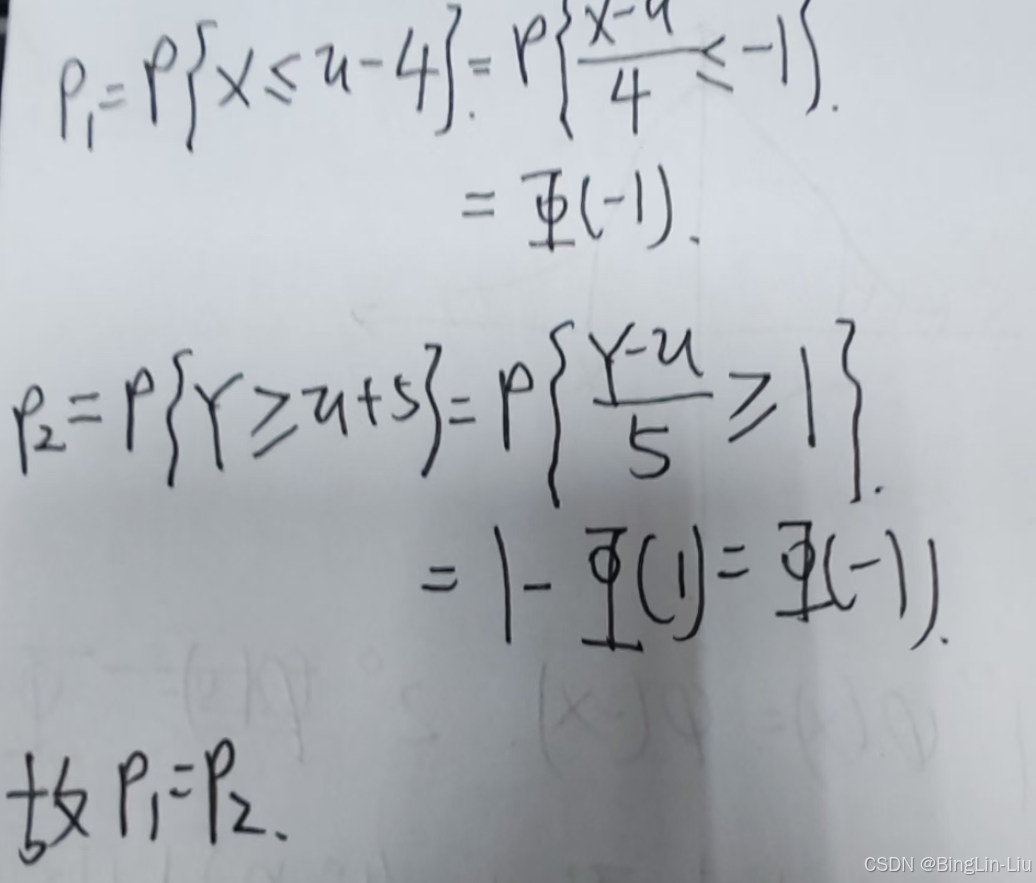 P₁=P{X≤u-4}.=P{(X-u)/4≤-1}.
=Φ(-1).
P₂=P{Y≥u+5}=P{(Y-u)/5≥1}.
=1-Φ(1)=Φ(-1).
故P₁=P₂.
CSDN @BingLin-Liu